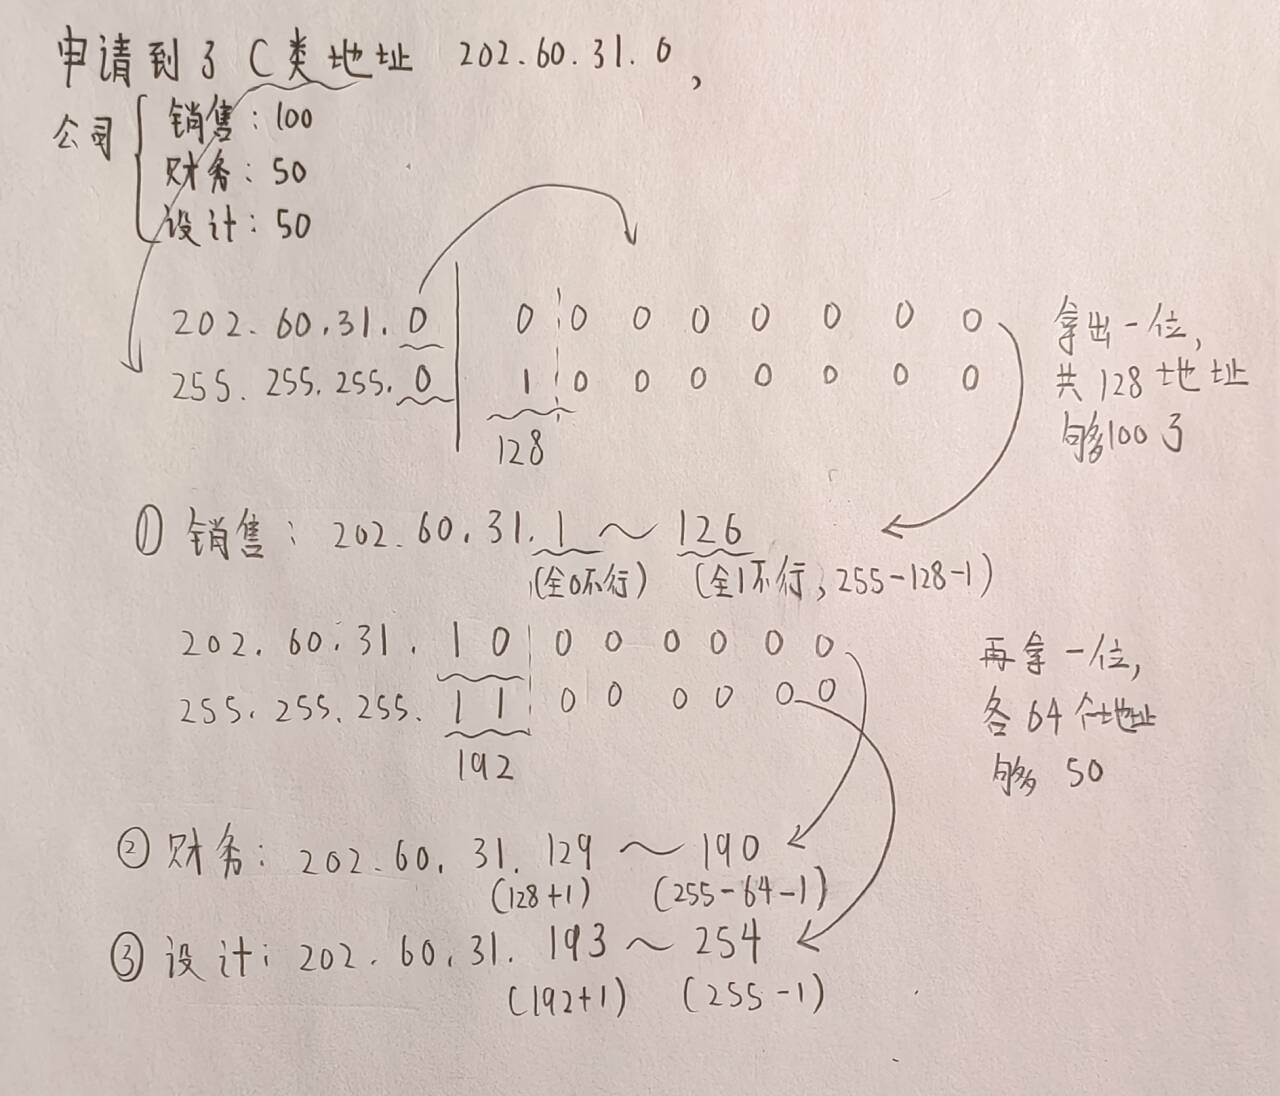 申请到了C类地址 202.60.31.0,
公司
销售:100
财务:50
设计:50
202.60.31.0 0 0 0 0 0 0 0 0
255.255.255.0 1 0 0 0 0 0 0 0
128
拿出一位,
共128地址
够100了
① 销售: 202.60.31.1~126
(全0不行) (全1不行,255-128-1)
202.60.31. 1 0 0 0 0 0 0 0
255.255.255. 1 1 0 0 0 0 0 0
192
再拿一位,
各64个地址
够50
② 财务: 202.60.31.129~190
(128+1) (255-64-1)
③ 设计: 202.60.31.193~254
(192+1) (255-1)